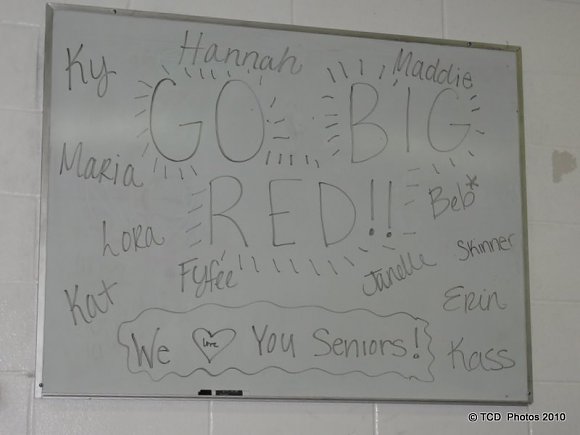 Ky
Hannah
Maddie
GO BIG
Maria
RED!!
Beb*
Lora
Skinner
Fyfee
Janelle
Kat
Erin
We love You Seniors!
Kass
© TCD Photos 2010